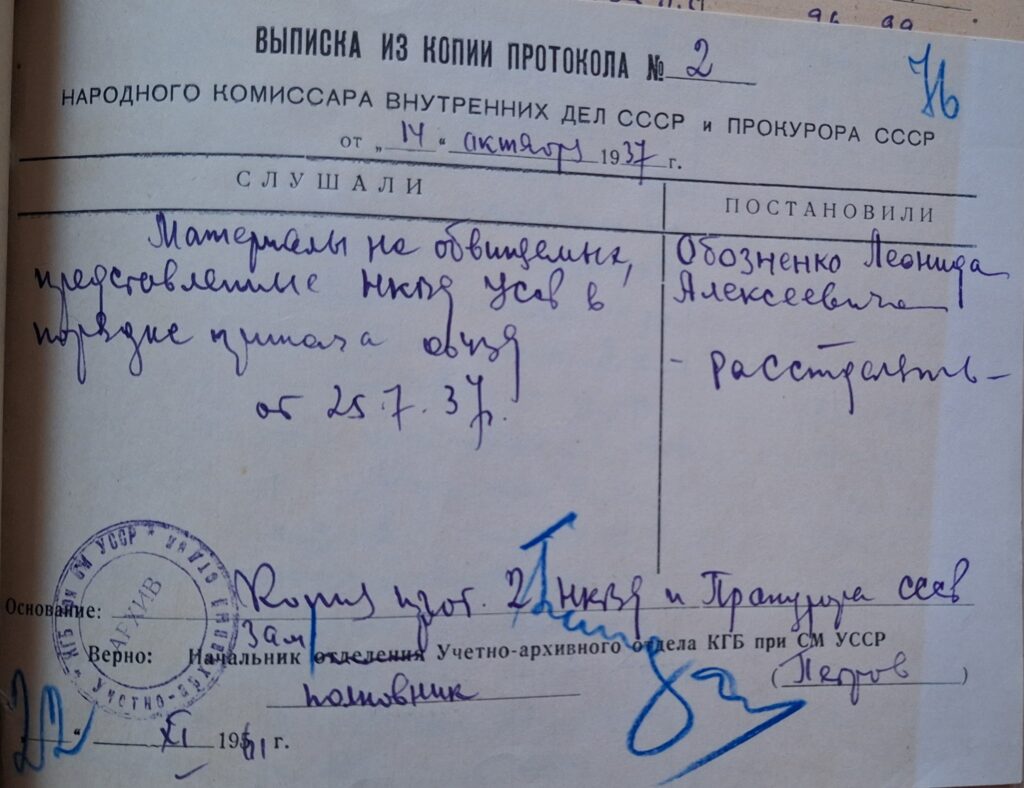 96 99
ВЫПИСКА ИЗ КОПИИ ПРОТОКОЛА № 2
76
НАРОДНОГО КОМИССАРА ВНУТРЕННИХ ДЕЛ СССР и ПРОКУРОРА СССР
от „14“ октября 1937 г.
СЛУШАЛИ
ПОСТАНОВИЛИ
Материалы на обвиняемых,
представленные НКВД УССР в
порядке приказа
от 25.7.37г.
Обозненко Леонида
Алексеевича
- расстрелять -
Основание: Копия прот. 2 НКВД и Прокурора СССР
Зам
Верно: Начальник отделения Учетно-архивного отдела КГБ при СМ УССР
полковник
(Петров)
22 “ XI 1961 г.
АРХИВ